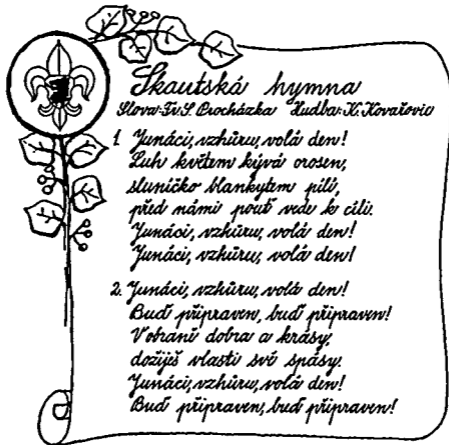 Skautská hymna
Slova: Fr. S. Procházka Hudba: K. Kovařovic
1. Junáci, vzhůru, volá den!
Luh květem kývá orosen,
sluníčko blankytem pílí,
před námi pouť vede k cíli.
Junáci, vzhůru, volá den!
Junáci, vzhůru, volá den!
2. Junáci, vzhůru, volá den!
Buď připraven, buď připraven!
V obraně dobra a krásy,
dožiješ vlasti své spásy.
Junáci, vzhůru, volá den!
Buď připraven, buď připraven!